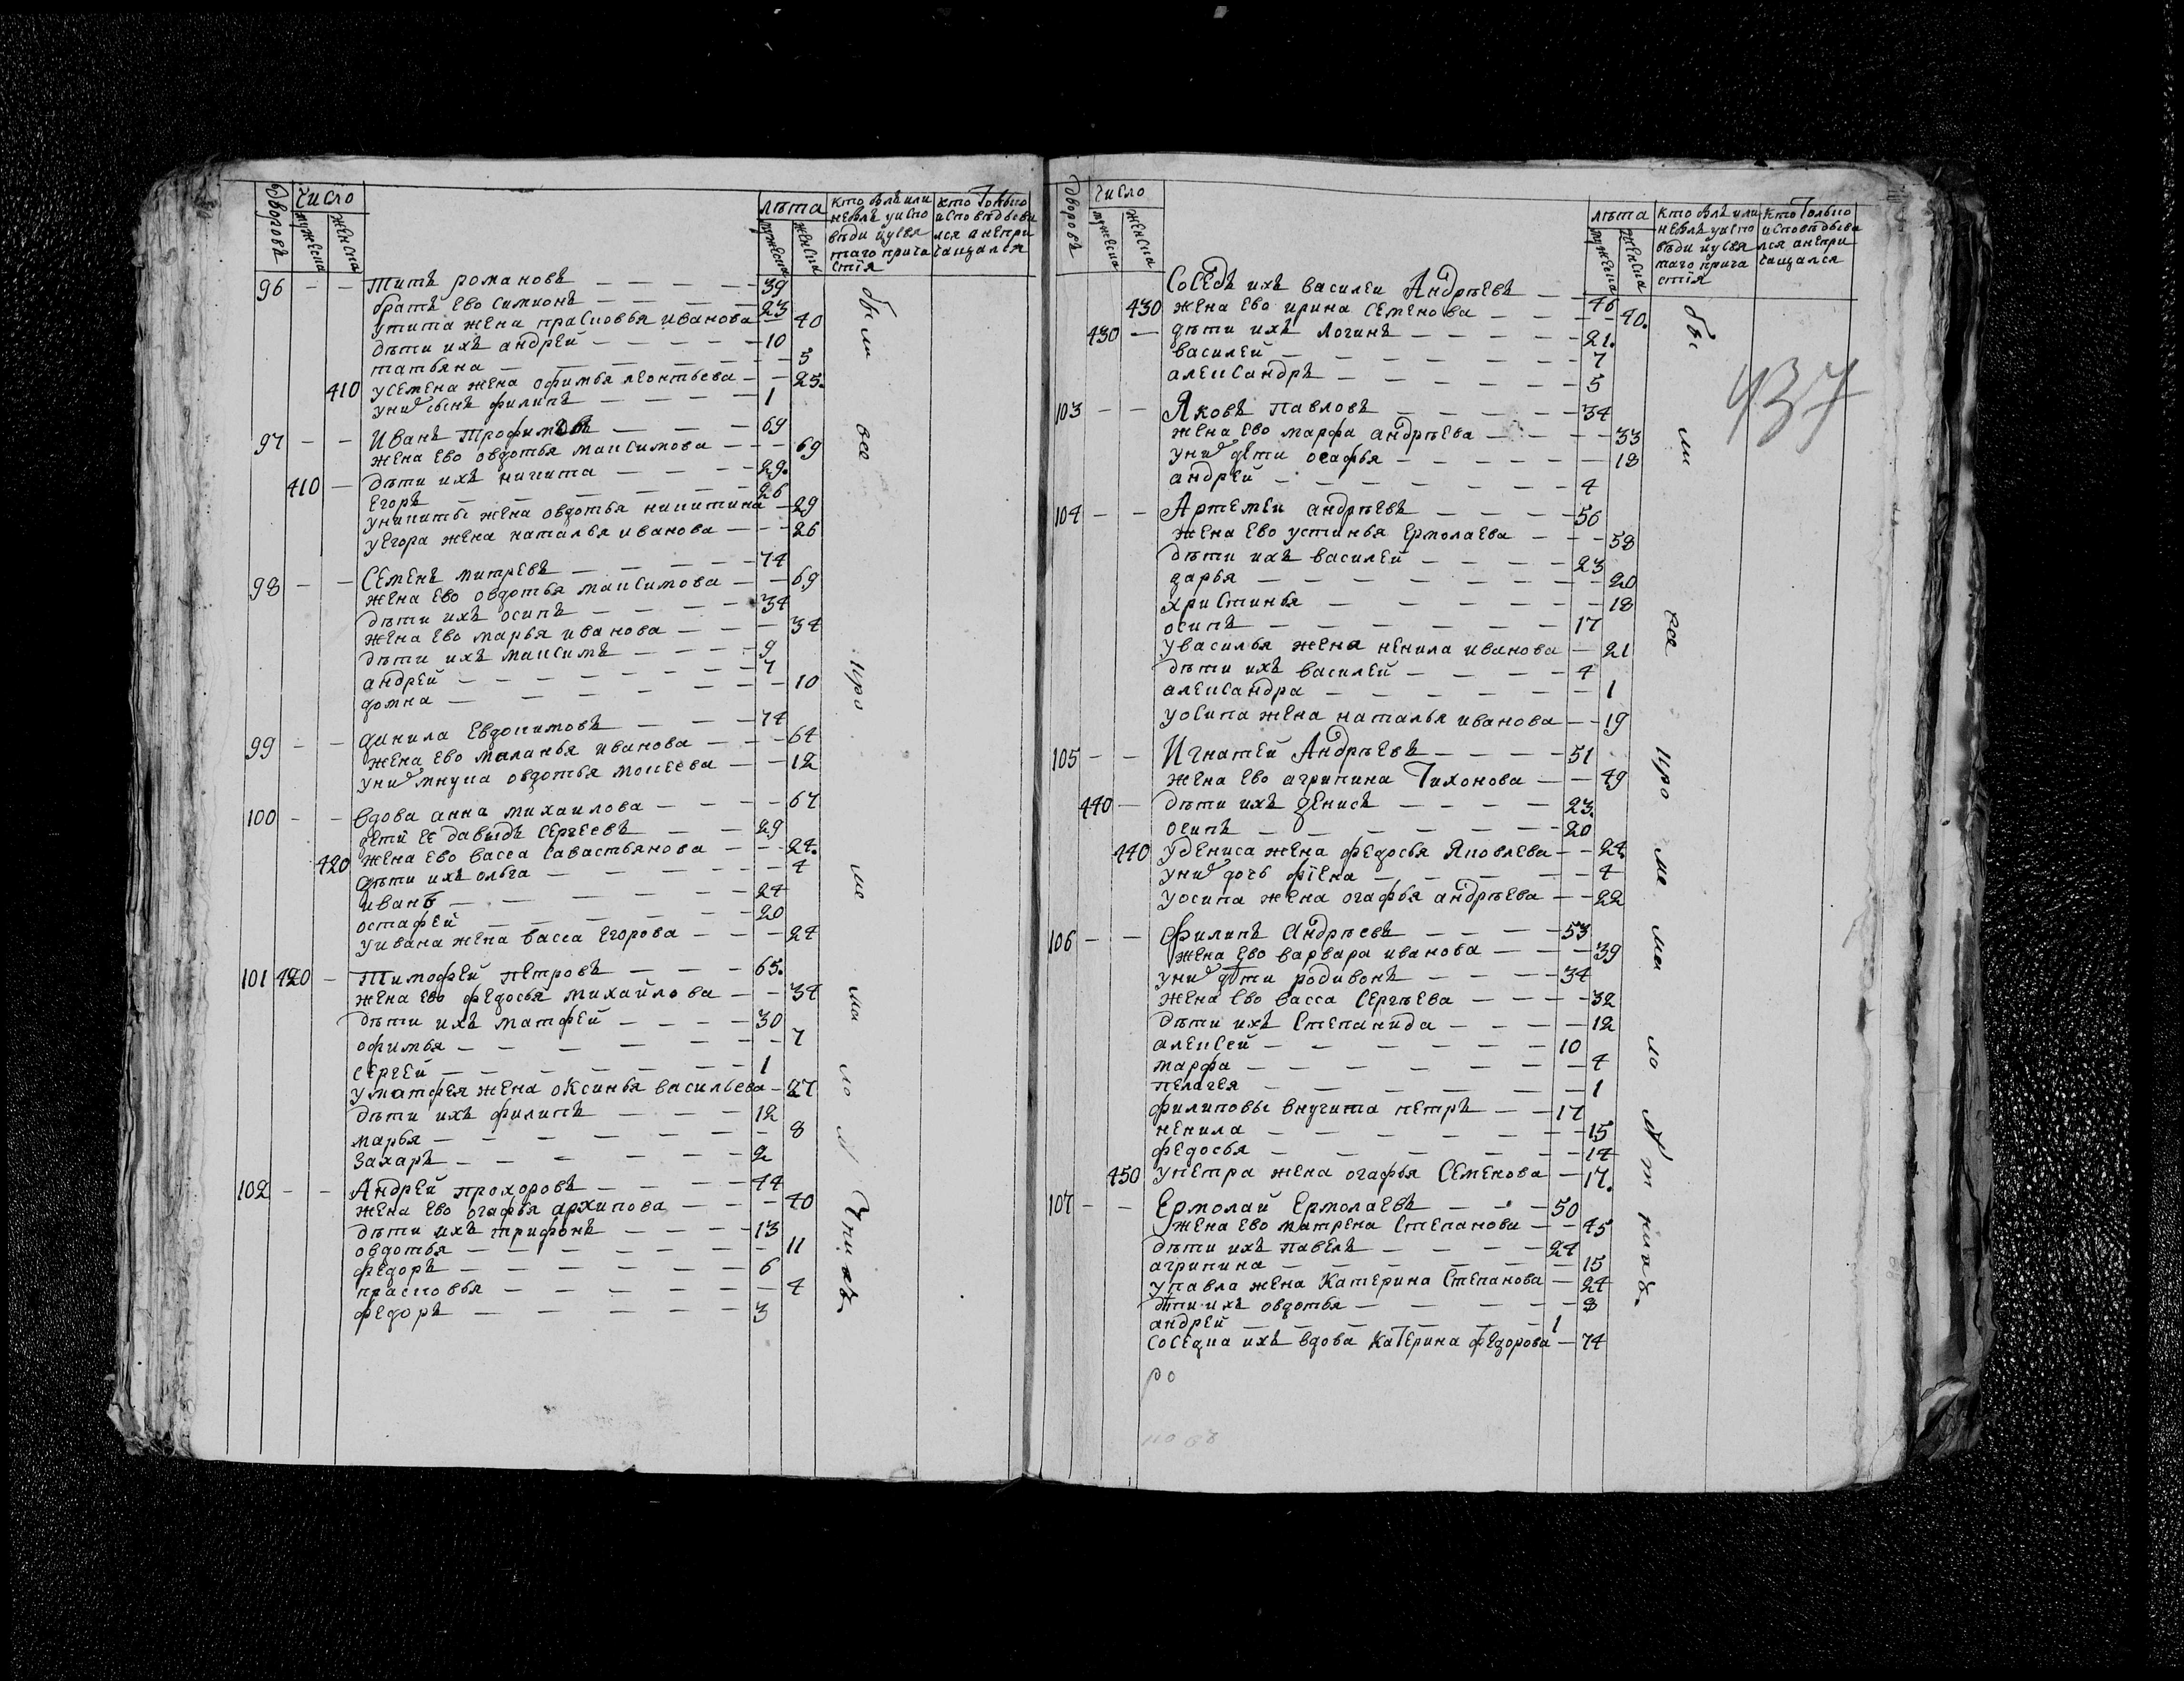 дворовъ число мужеска женска лѣта мужеска женска кто былъ или небылъ уиспо вѣди иусвя таго прича стїя кто Только исповѣдыва лся анепри чащался
96 — — Титъ романовъ — 39
братъ ево симионъ — 23
утита жена прасковья иванова — 40
дѣти ихъ андрей — 10
татьяна — 5
410 усемена жена офимья леонтьева — 25.
уних сынъ филипъ — 1
97 — — Иванъ Трофимовъ — 69
жена ево овдотья максимова — 69
410 — дѣти ихъ никита — 29.
Егоръ — 26
уникиты жена овдотья никитина — 29
уЕгора жена наталья иванова — 26
98 — — Семенъ митревъ — 74
жена ево овдотья максимова — 69
дѣти ихъ осипъ — 34
жена ево марья иванова — 34
дѣти ихъ максимъ — 9
андрей — 7
домна — 10
99 — — данила Евдокимовъ — 74
жена ево маланья иванова — 64
уних внука овдотья моисеева — 12
100 — — вдова анна михаилова — 67
дети ее давыдъ сергеевъ — 29
420 жена ево васса савастьянова — 24.
дѣти ихъ ольга — 4
иванъ — 24
остафей — 20
уивана жена васса Егорова — 24
101 420 — Тимофей петровъ — 65.
жена ево федосья михайлова — 34
дѣти ихъ матфей — 30
офимья — 7
сергей — 1
уматфея жена оксинья васильева — 27
дѣти ихъ филипъ — 12
марья — 8
Захаръ — 2
102 — — Андрей прохоровъ — 44
жена ево огафья архипова — 40
дѣти ихъ трифонъ — 13
овдотья — 11
федоръ — 6
прасковья — 4
федоръ — 3
были все кро ме ма ло лѣтнихъ.
дворовъ число мужеска женска лѣта мужеска женска кто былъ или небылъ уиспо вѣди иусвя таго прича стїя кто Только исповѣдыва лся анепри чащался
437
Соседъ ихъ василеи Андрѣевъ — 46
430 жена ево ирина семенова — 40.
430 — дѣти ихъ логинъ — 21.
василей — 7
александръ — 5
103 — — Яковъ павловъ — 34
жена ево марфа андрѣева — 33
уних дети огафья — 18
андрей — 4
104 — — Артемеи андрѣевъ — 56
жена ево устинья Ермолаева — 58
дѣти ихъ василей — 23
дарья — 20
христинья — 18
осипъ — 17
увасилья жена ненила иванова — 21
дѣти ихъ василей — 4
александра — 1
уосипа жена наталья иванова — 19
105 — — Игнатей Андрѣевъ — 51
жена ево агрипина Тихонова — 49
440 — дѣти ихъ денисъ — 23.
осипъ — 20
440 удениса жена федосья Яковлева — 24.
уних дочь фїена — 4
уосипа жена огафья андрѣева — 22
106 — — филипъ Андрѣевъ — 53
жена ево варвара иванова — 39
уних дѣти родивонъ — 34
жена ево васса сергѣева — 32
дѣти ихъ степанида — 12
алексей — 10
марфа — 4
пелагея — 1
филиповы внучита петръ — 17
ненила — 15
федосья — 14
450 упетра жена огафья Семенова — 17.
107 — — Ермолай Ермолаевъ — 50
жена ево матрена степанова — 45
дѣти ихъ павелъ — 24
агрипина — 15
упавла жена Катерина Степанова — 24
дѣти ихъ овдотья — 8
андрей — 1
соседка ихъ вдова Катерина федорова — 74
ро
бы ли все кро ме ма ло лѣт нихъ.